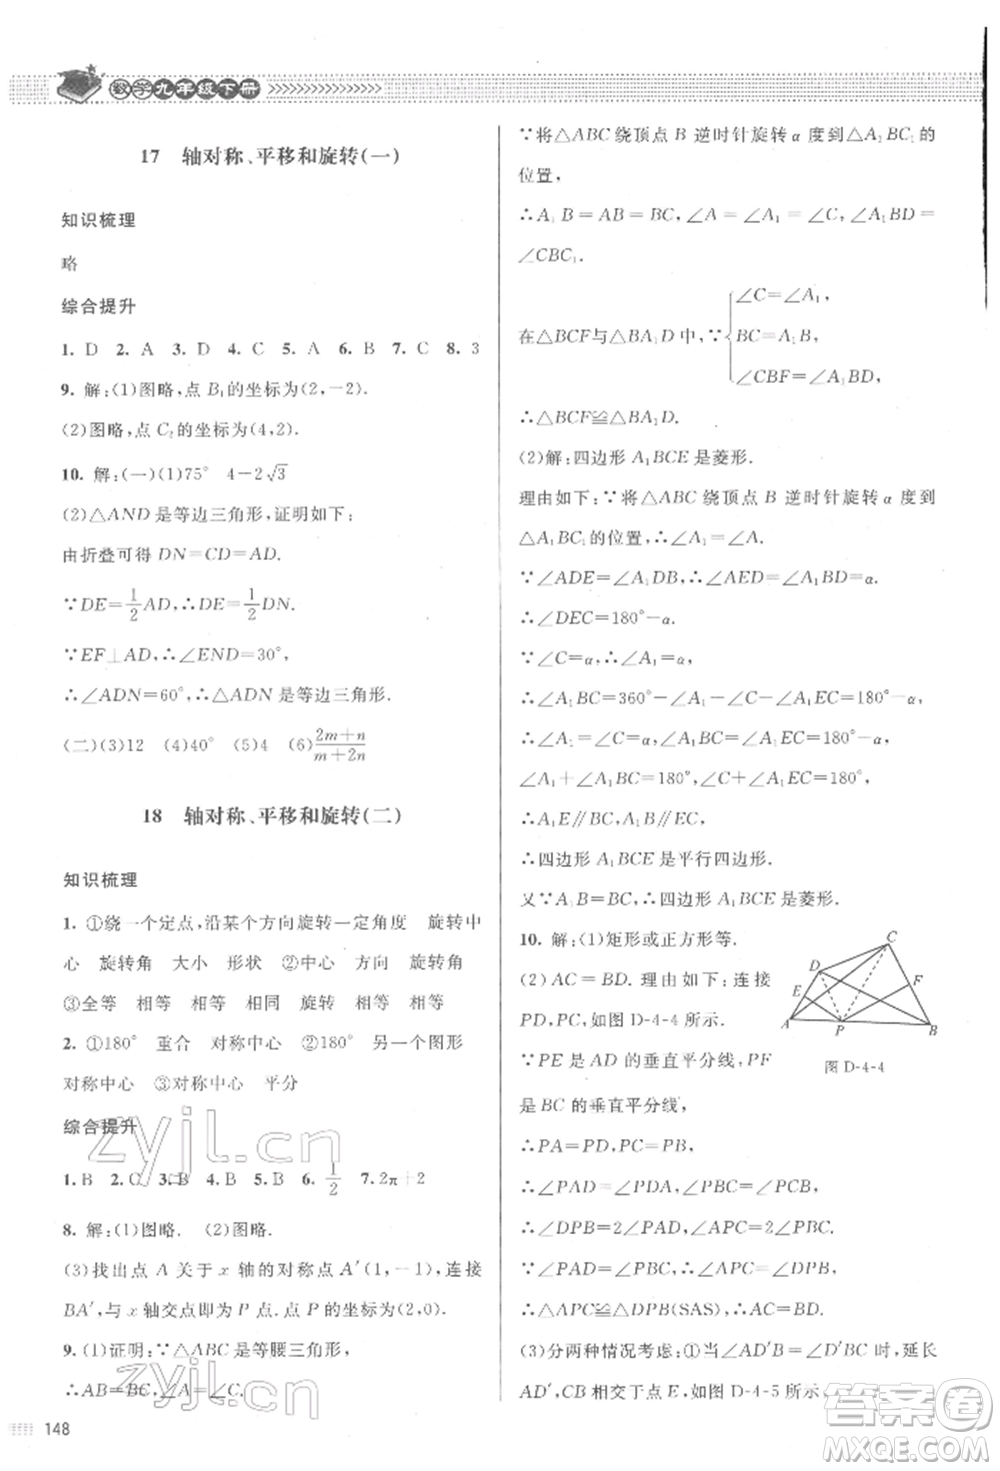 数学九年级下册
17 轴对称、平移和旋转(一)
知识梳理
略
综合提升
1. D 2. A 3. D 4. C 5. A 6. B 7. C 8. 3
9. 解:(1)图略,点 B₁的坐标为(2,-2).
(2)图略,点 C₂的坐标为(4,2).
10. 解:(一)(1)75° 4-2√3
(2)△AND是等边三角形,证明如下:
由折叠可得 DN=CD=AD.
∵DE=1/2 AD,∴DE=1/2 DN.
∵EF⊥AD,∴∠END=30°,
∴∠ADN=60°,∴△ADN是等边三角形.
(二)(3)12 (4)40° (5)4 (6)(2m+n)/(m+2n)
18 轴对称、平移和旋转(二)
知识梳理
1. ①绕一个定点,沿某个方向旋转一定角度 旋转中
心 旋转角 大小 形状 ②中心 方向 旋转角
③全等 相等 相等 相同 旋转 相等 相等
2. ①180° 重合 对称中心 ②180° 另一个图形
对称中心 ③对称中心 平分
综合提升
1. B 2. C 3. B 4. B 5. B 6. 1/2 7. 2π+2
8. 解:(1)图略. (2)图略.
(3)找出点 A 关于 x 轴的对称点 A′(1,-1),连接
BA′,与 x 轴交点即为 P 点.点 P 的坐标为(2,0).
9. (1)证明:∵△ABC是等腰三角形,
∴AB=BC,∠A=∠C.
148
∵将△ABC 绕顶点 B 逆时针旋转 α 度到△A₁BC₁的
位置,
∴A₁B=AB=BC,∠A=∠A₁=∠C,∠A₁BD=
∠CBC₁.
在△BCF与△BA₁D中,∵{∠C=∠A₁, BC=A₁B, ∠CBF=∠A₁BD,
∴△BCF≌△BA₁D.
(2)解:四边形 A₁BCE 是菱形.
理由如下:∵将△ABC 绕顶点 B 逆时针旋转 α 度到
△A₁BC₁的位置,∴∠A₁=∠A.
∵∠ADE=∠A₁DB,∴∠AED=∠A₁BD=α,
∴∠DEC=180°-α.
∵∠C=α,∴∠A₁=α.
∴∠A₁BC=360°-∠A₁-∠C-∠A₁EC=180°-α.
∴∠A₁=∠C,∠A₁BC=∠A₁EC=180°-α,
∠A₁+∠A₁BC=180°,∠C+∠A₁BC=180°,
∴A₁E∥BC,A₁B∥EC,
∴四边形 A₁BCE是平行四边形.
又∵A₁B=BC,∴四边形 A₁BCE是菱形.
10. 解:(1)矩形或正方形等.
(2)AC=BD.理由如下:连接
PD,PC,如图 D-4-4 所示.
∵PE 是 AD 的垂直平分线,PF
是 BC 的垂直平分线,
∴PA=PD,PC=PB,
∴∠PAD=∠PDA,∠PBC=∠PCB,
∴∠DPB=2∠PAD,∠APC=2∠PBC.
∵∠PAD=∠PBC,∴∠APC=∠DPB,
∴△APC≌△DPB(SAS),∴AC=BD.
(3)分两种情况考虑:①当∠AD′B=∠D′BC时,延长
AD′,CB 相交于点 E,如图 D-4-5所示,
C
D
E
F
A
P
B
图 D-4-4
zyjl.cn
zyjl.cn
答案卷
MXQE.COM